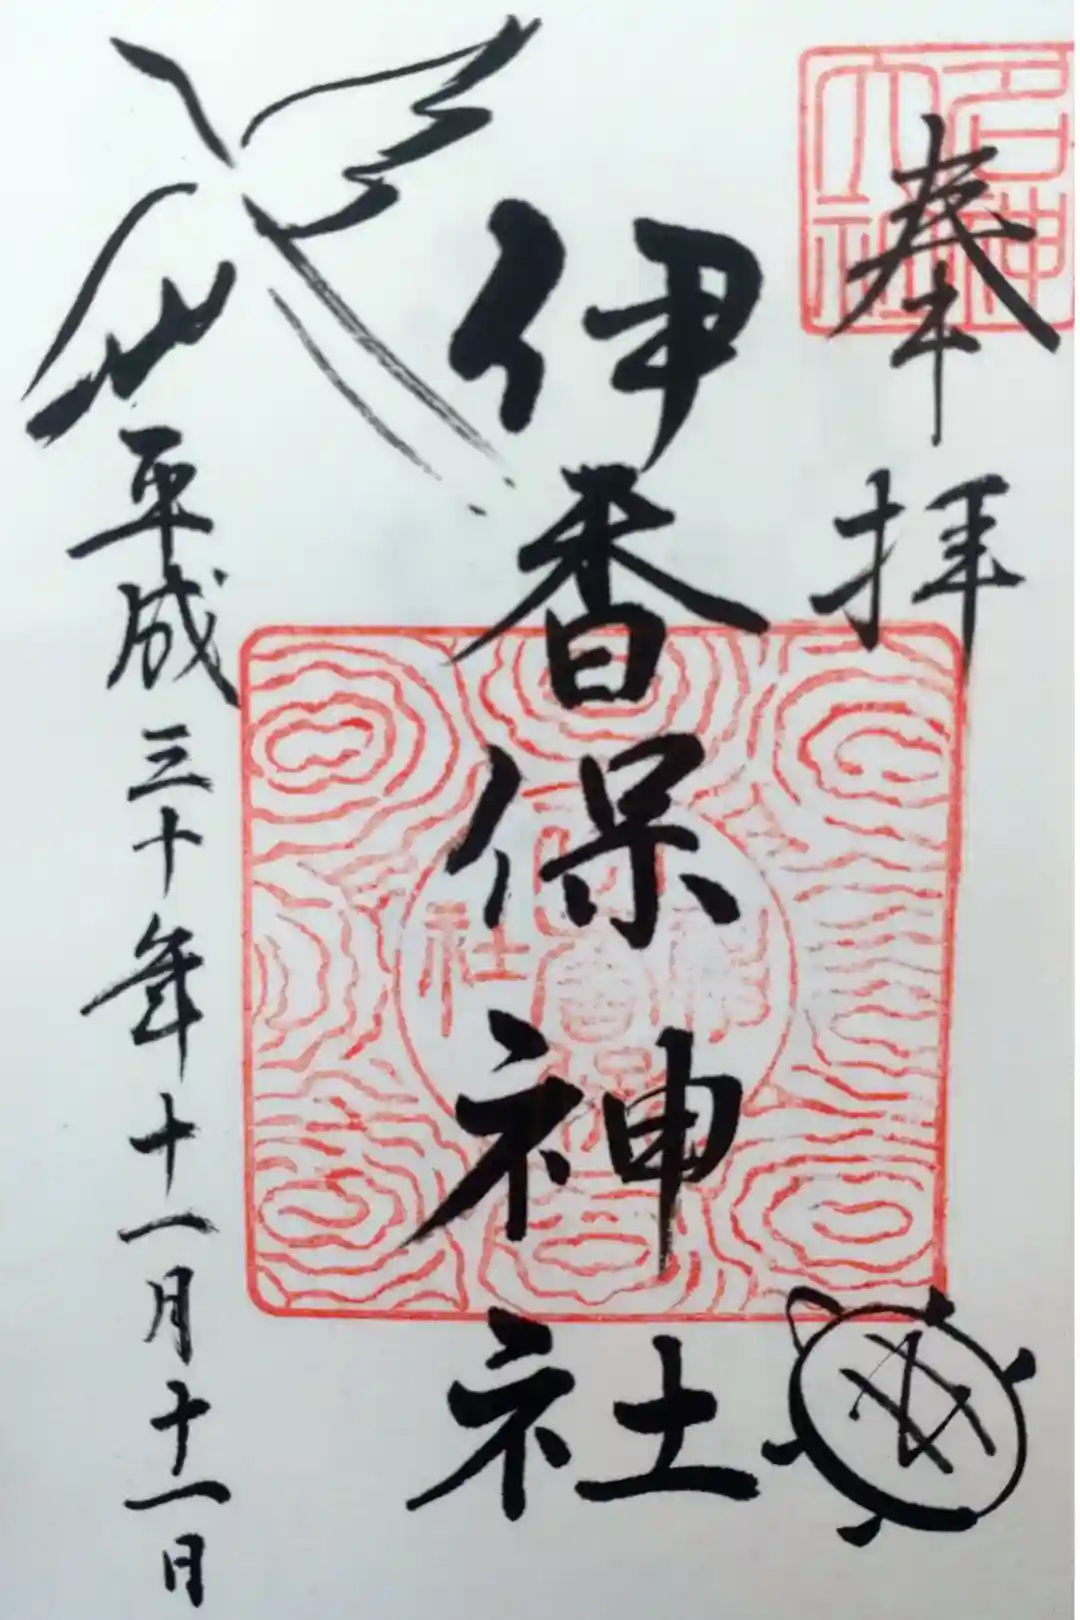 奉拝
名神大社
伊香保神社
平成三十年十一月十一日